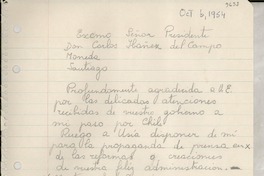 Oct 6, 1954
Excmo Señor Presidente
Don Carlos Ibáñez del Campo
Moneda
Santiago
Profundamente agradecida a S.E.
por las delicadas atenciones
recibidas de nuestro gobierno a
mi paso por Chile
Ruego a Usía disponer de mi
para la propaganda de prensa en
de las reformas o creaciones
de nuestra feliz administracion.